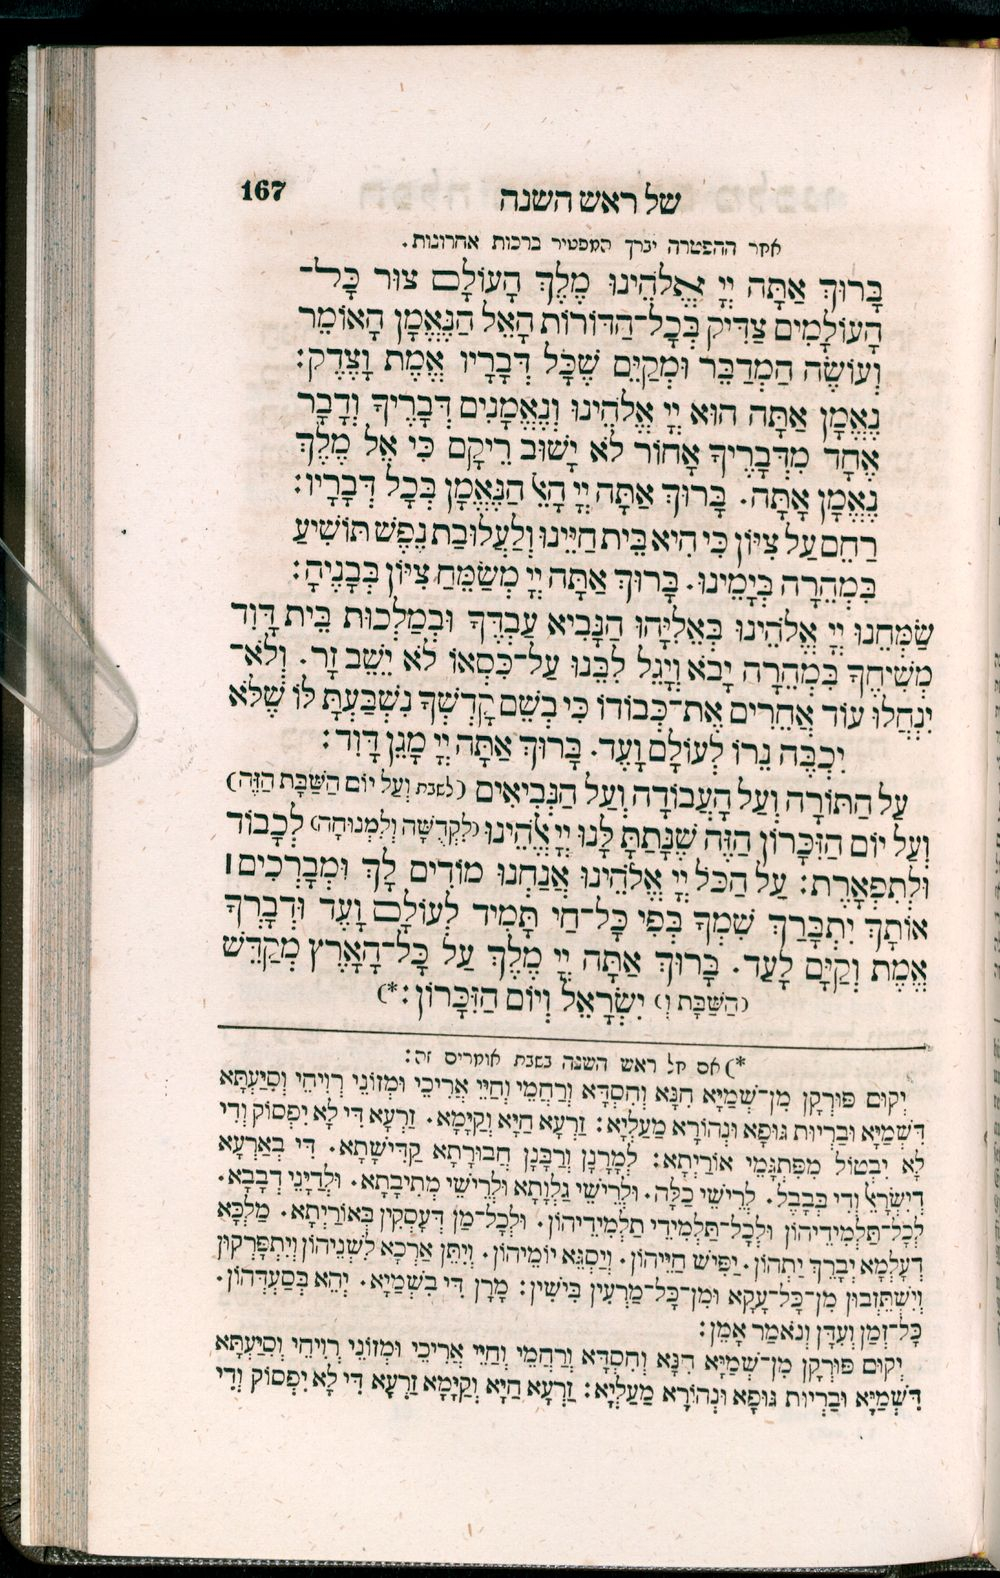 של ראש השנה 167
אחר ההפטרה יברך המפטיר ברכות אחרונות.
בָּרוּךְ אַתָּה יְיָ אֱלֹהֵינוּ מֶלֶךְ הָעוֹלָם צוּר כָּל־
הָעוֹלָמִים צַדִּיק בְּכָל־הַדּוֹרוֹת הָאֵל הַנֶּאֱמָן הָאוֹמֵר
וְעוֹשֶׂה הַמְדַבֵּר וּמְקַיֵּם שֶׁכָּל דְּבָרָיו אֱמֶת וָצֶדֶק:
נֶאֱמָן אַתָּה הוּא יְיָ אֱלֹהֵינוּ וְנֶאֱמָנִים דְּבָרֶיךָ וְדָבָר
אֶחָד מִדְּבָרֶיךָ אָחוֹר לֹא יָשׁוּב רֵיקָם כִּי אֵל מֶלֶךְ
נֶאֱמָן אָתָּה. בָּרוּךְ אַתָּה יְיָ הָאֵל הַנֶּאֱמָן בְּכָל דְּבָרָיו:
רַחֵם עַל צִיּוֹן כִּי הִיא בֵּית חַיֵּינוּ וְלַעֲלוּבַת נֶפֶשׁ תּוֹשִׁיעַ
בִּמְהֵרָה בְּיָמֵינוּ. בָּרוּךְ אַתָּה יְיָ מְשַׂמֵּחַ צִיּוֹן בְּבָנֶיהָ:
שַׂמְּחֵנוּ יְיָ אֱלֹהֵינוּ בְּאֵלִיָּהוּ הַנָּבִיא עַבְדֶּךָ וּבְמַלְכוּת בֵּית דָּוִד
מְשִׁיחֶךָ בִּמְהֵרָה יָבֹא וְיָגֵל לִבֵּנוּ עַל־כִּסְאוֹ לֹא יֵשֵׁב זָר. וְלֹא־
יִנְחֲלוּ עוֹד אֲחֵרִים אֶת־כְּבוֹדוֹ כִּי בְשֵׁם קָדְשְׁךָ נִשְׁבַּעְתָּ לּוֹ שֶׁלֹּא
יִכְבֶּה נֵרוֹ לְעוֹלָם וָעֶד. בָּרוּךְ אַתָּה יְיָ מָגֵן דָּוִד:
עַל הַתּוֹרָה וְעַל הָעֲבוֹדָה וְעַל הַנְּבִיאִים (לשבת וְעַל יוֹם הַשַּׁבָּת הַזֶּה)
וְעַל יוֹם הַזִּכָּרוֹן הַזֶּה שֶׁנָּתַתָּ לָּנוּ יְיָ אֱלֹהֵינוּ (לִקְדֻשָּׁה וְלִמְנוּחָה) לְכָבוֹד
וּלְתִפְאָרֶת: עַל הַכֹּל יְיָ אֱלֹהֵינוּ אֲנַחְנוּ מוֹדִים לָךְ וּמְבָרְכִים
אוֹתָךְ יִתְבָּרַךְ שִׁמְךָ בְּפִי כָּל־חַי תָּמִיד לְעוֹלָם וָעֶד וּדְבָרְךָ
אֱמֶת וְקַיָּם לָעַד. בָּרוּךְ אַתָּה יְיָ מֶלֶךְ עַל כָּל־הָאָרֶץ מְקַדֵּשׁ
(הַשַּׁבָּת וְ) יִשְׂרָאֵל וְיוֹם הַזִּכָּרוֹן:*)
*) אם חל ראש השנה בשבת אומרים זה:
יְקוּם פּוּרְקָן מִן־שְׁמַיָּא חִנָּא וְחִסְדָּא וְרַחֲמֵי וְחַיֵּי אֲרִיכֵי וּמְזוֹנֵי רְוִיחֵי וְסִיַּעְתָּא
דִּשְׁמַיָּא וּבַרְיוּת גּוּפָא וּנְהוֹרָא מַעַלְיָא: זַרְעָא חַיָּא וְקַיָּמָא. זַרְעָא דִּי לָא יִפְסוֹק וְדִי
לָא יִבְטוֹל מִפִּתְגָּמֵי אוֹרַיְתָא: לְמָרָנָן וְרַבָּנָן חֲבוּרָתָא קַדִּישָׁתָא. דִּי בְאַרְעָא
דְיִשְׂרָאֵל וְדִי בְּבָבֶל. לְרֵישֵׁי כַלָּה. וּלְרֵישֵׁי גַלְוָתָא וּלְרֵישֵׁי מְתִיבָתָא. וּלְדַיָּנֵי דְבָבָא.
לְכָל־תַּלְמִידֵיהוֹן וּלְכָל־תַּלְמִידֵי תַלְמִידֵיהוֹן. וּלְכָל־מַן דְּעָסְקִין בְּאוֹרַיְתָא. מַלְכָּא
דְעָלְמָא יְבָרֵךְ יַתְהוֹן. יַפִּישׁ חַיֵּיהוֹן. וְיַסְגֵּא יוֹמֵיהוֹן. וְיִתֵּן אַרְכָא לִשְׁנֵיהוֹן וְיִתְפָּרְקוּן
וְיִשְׁתֵּזְבוּן מִן־כָּל־עָקָא וּמִן־כָּל־מַרְעִין בִּישִׁין: מָרָן דִּי בִשְׁמַיָּא. יְהֵא בְסַעְדְּהוֹן.
כָּל־זְמַן וְעִדָּן וְנֹאמַר אָמֵן:
יְקוּם פּוּרְקָן מִן־שְׁמַיָּא חִנָּא וְחִסְדָּא וְרַחֲמֵי וְחַיֵּי אֲרִיכֵי וּמְזוֹנֵי רְוִיחֵי וְסִיַּעְתָּא
דִּשְׁמַיָּא וּבַרְיוּת גּוּפָא וּנְהוֹרָא מַעַלְיָא: זַרְעָא חַיָּא וְקַיָּמָא זַרְעָא דִּי לָא יִפְסוֹק וְדִי